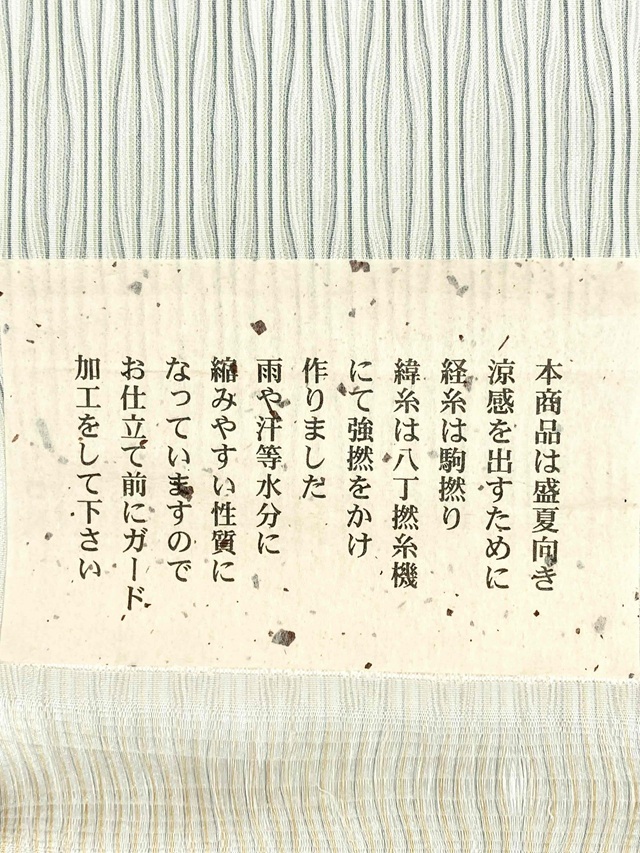 本商品は盛夏向き
涼感を出すために
経糸は駒撚り
緯糸は八丁撚糸機
にて強撚をかけ
作りました
雨や汗等水分に
縮みやすい性質に
なっていますので
お仕立て前にガード
加工をして下さい